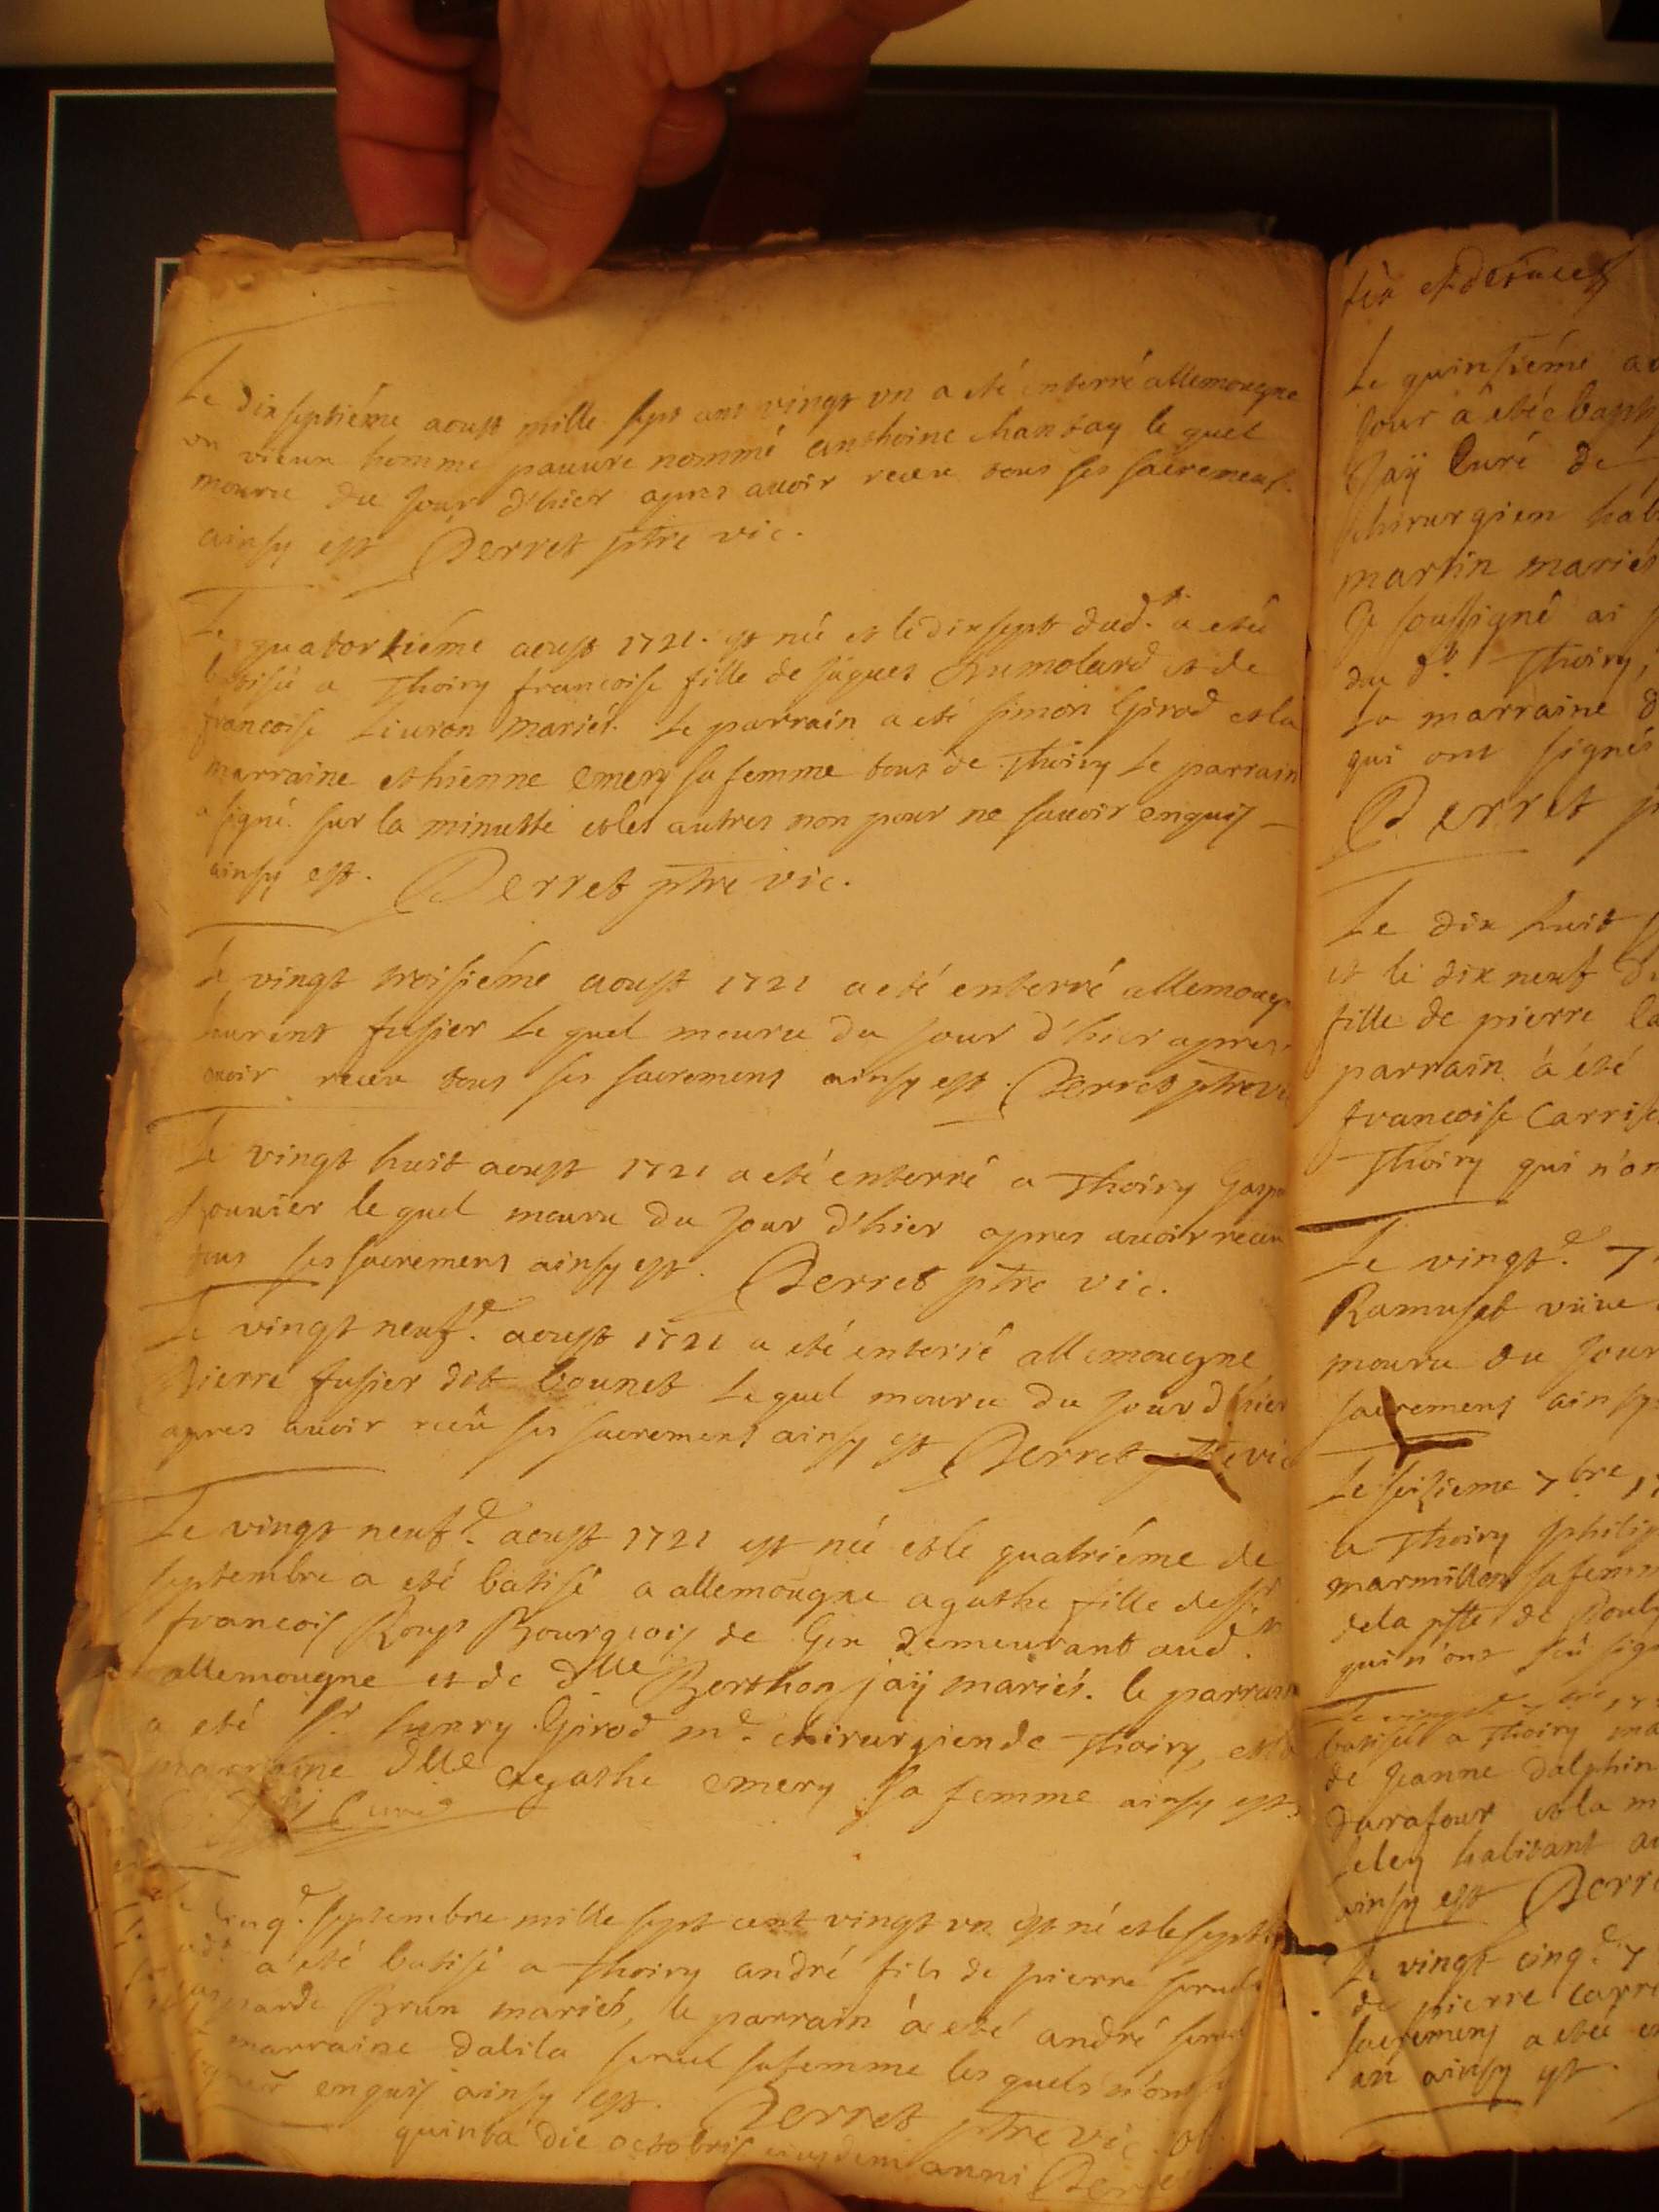 Le dix septiéme aoust mille sept cent vingt vn a eté enterré allemougne
vn vieux homme pauure nommé anthoine chantay le quel
mouru du jour d'hier apres auoir receu tous ses sacremens.
ainsy est Perret ptre vic.
Le quatorziéme aoust 1721. est née et le dix sept dud.t a eté
batisée a Thoiry francoise fille de jaques Dumolard et de
francoise Liuron mariés. Le parrain a eté simon Girod et la
marraine ethienne emery sa femme tous de Thoiry Le parrain
a signé sur la minutte et les autres non pour ne sauoir enquis
ainsy est. Perret ptre vic.
Le vingt troisiéme aoust 1721 a eté enterré allemougn
Laurent fusier Le quel mouru du jour d'hier apres
auoir receu tous ses sacremens ainsy est. Perret ptre vi
Le vingt huit aoust 1721 a eté enterré a Thoiry Gaspa
Bouuier le quel mouru du jour d'hier apres auoir receu
tous ses sacremens ainsy est. Perret ptre vic.
Le vingt neuf.e aoust 1721 a eté enterré allemougne
Pierre fusier dit bounet Le quel mouru du jour d'hier
apres auoir receû ses sacremens ainsy est Perret ptre vic
Le vingt neuf.e aoust 1721 est née et le quatriéme de
septembre a eté batisé a allemougne agathe fille de s.r
francois Roup Bourgeois de Gex demeurant aud.t
allemougne et de dlle Berthon jaÿ mariés. le parrain
a eté s.r henry Girod m.e chirurgien de Thoiry, et la
marraine dlle agathe emery sa femme ainsy est
Curé
Le cinq.e septembre mille sept cent vingt vn est né et le sept
a eté batisé a Thoiry andré fils de pierre
Brun mariés, le parrain a eté andré
marraine dalila sa femme les quels n'ont
enquis ainsy est. Perret ptre vic. ob
quinta die octobris eiusdem anni Perre
Le quinziéme ao
jour a eté bapt
Jaÿ Curé de
chirurgien hab
martin mariés
Je soussigné ai
du d.t Thoiry,
La marraine d
qui ont signés
Perret p
Le dix huit
et le dix neuf du
fille de pierre la
parrain a été
francoise Carris
Thoiry qui n'on
Le vingt.e 7
Ramuset
mouru du jour
sacremens ainsy
Le seisieme 7bre
a Thoiry philip
marmillon sa femm
de la psse de Pouly
qui n'ont seü sig
batisé a Thoiry ma
de Jeanne dalphin
durafour et la m
habitant au
ainsy est Perre
Le vingt cinq.e 7
de pierre Carr
sacremens a eteé en
an ainsy est